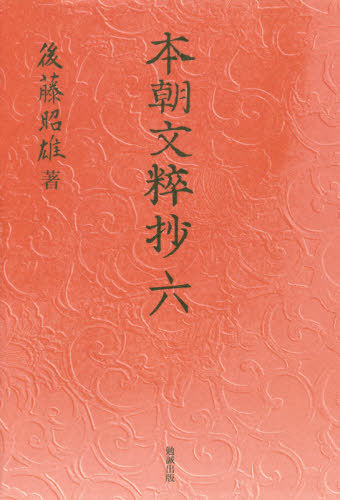 本朝文粹抄 六
後藤昭雄 著
勉誠出版